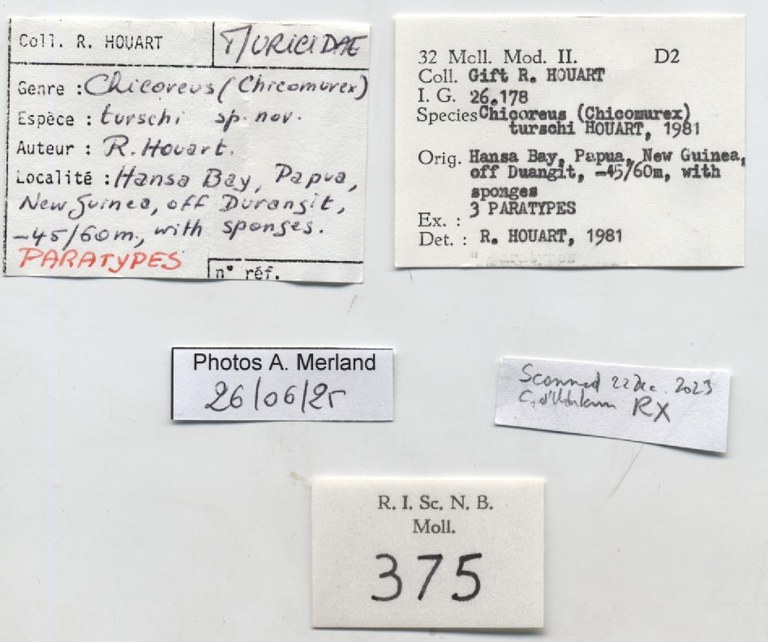 Coll. R. HOUART
MURICIDAE
Genre : Chicoreus (Chicomurex)
Espèce : turschi sp. nov.
Auteur : R. Houart.
Localité : Hansa Bay, Papua,
New Guinea, off Durangit,
-45/60m, with sponges.
PARATYPES
n° réf.
32 Moll. Mod. II. D2
Coll. Gift R. HOUART
I. G. 26.178
Species Chicoreus (Chicomurex)
turschi HOUART, 1981
Orig. Hansa Bay, Papua, New Guinea,
off Duangit, -45/60m, with
sponges
3 PARATYPES
Ex. :
Det. : R. HOUART, 1981
Photos A. Merland
26/06/25
Scanned 22 Dec. 2023
RX
R. I. Sc. N. B.
Moll.
375